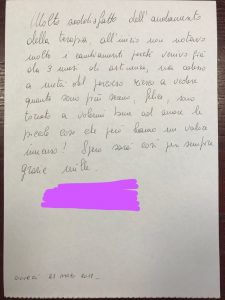 Molto soddisfatto dell'andamento
della terapia, all'inizio non notavo
molto i cambiamenti perché venivo già
da 3 mesi di astinenza, ma adesso
a metà del percorso riesco a vedere
quanto sono più sereno, felice, sono
tornato a volermi bene ad amare le
piccole cose che però hanno un valore
immenso! Spero sarà così per sempre
grazie mille